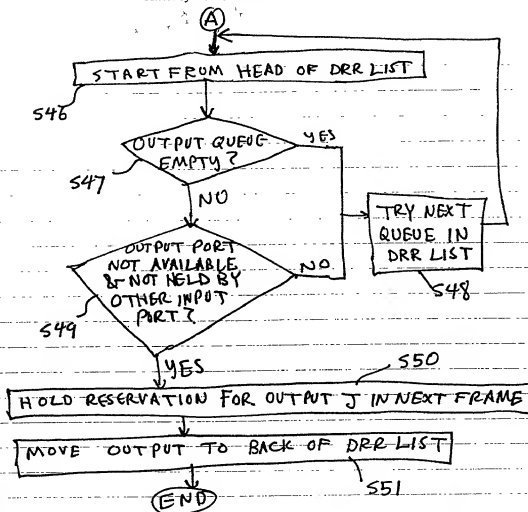 A
START FROM HEAD OF DRR LIST
S46
OUTPUT QUEUE
EMPTY?
YES
S47
NO
TRY NEXT
QUEUE IN
DRR LIST
S48
OUTPUT PORT
NOT AVAILABLE
& NOT HELD BY
OTHER INPUT
PORT?
NO
S49
YES
S50
HOLD RESERVATION FOR OUTPUT J IN NEXT FRAME
MOVE OUTPUT TO BACK OF DRR LIST
S51
END